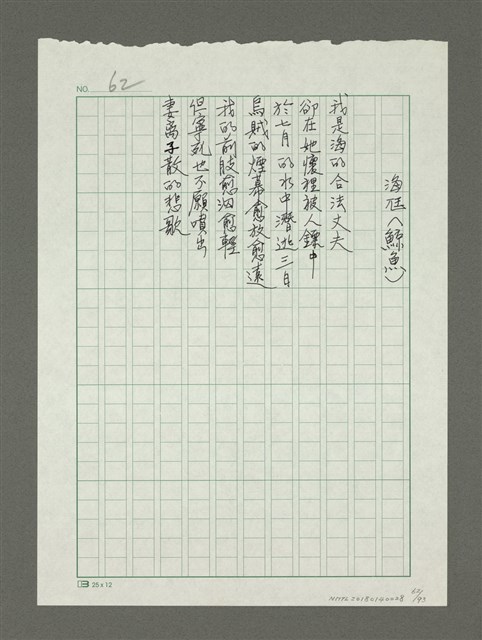 NO. 62
海尫（鯨魚）
我是海的合法丈夫
卻在她懷裡被人鏢中
於七月的水中潛逃三日
烏賊的煙幕愈放愈遠
我的前肢愈泅愈輕
但寧死也不願噴出
妻离子散的悲歌
25 x 12
NMTL20180140028
62/93